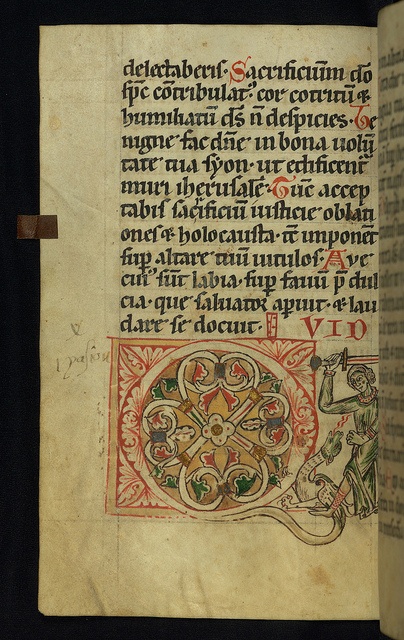 delectaberis. Sacrificium do
spc cotribulat' cor cotritu &
humiliatu ds n despicies. Be
nigne fac dne in bona uolu
tate tua syon. ut edificent'
muri iherusale. Tuc accep
tabis sacrificiu iusticie oblati
ones & holocausta. tc imponet
sup altare tuu uitulos. Aue
cui' sut labia. sup fauu
cia. que saluator aperuit. & lau
dare se docuit.
VID